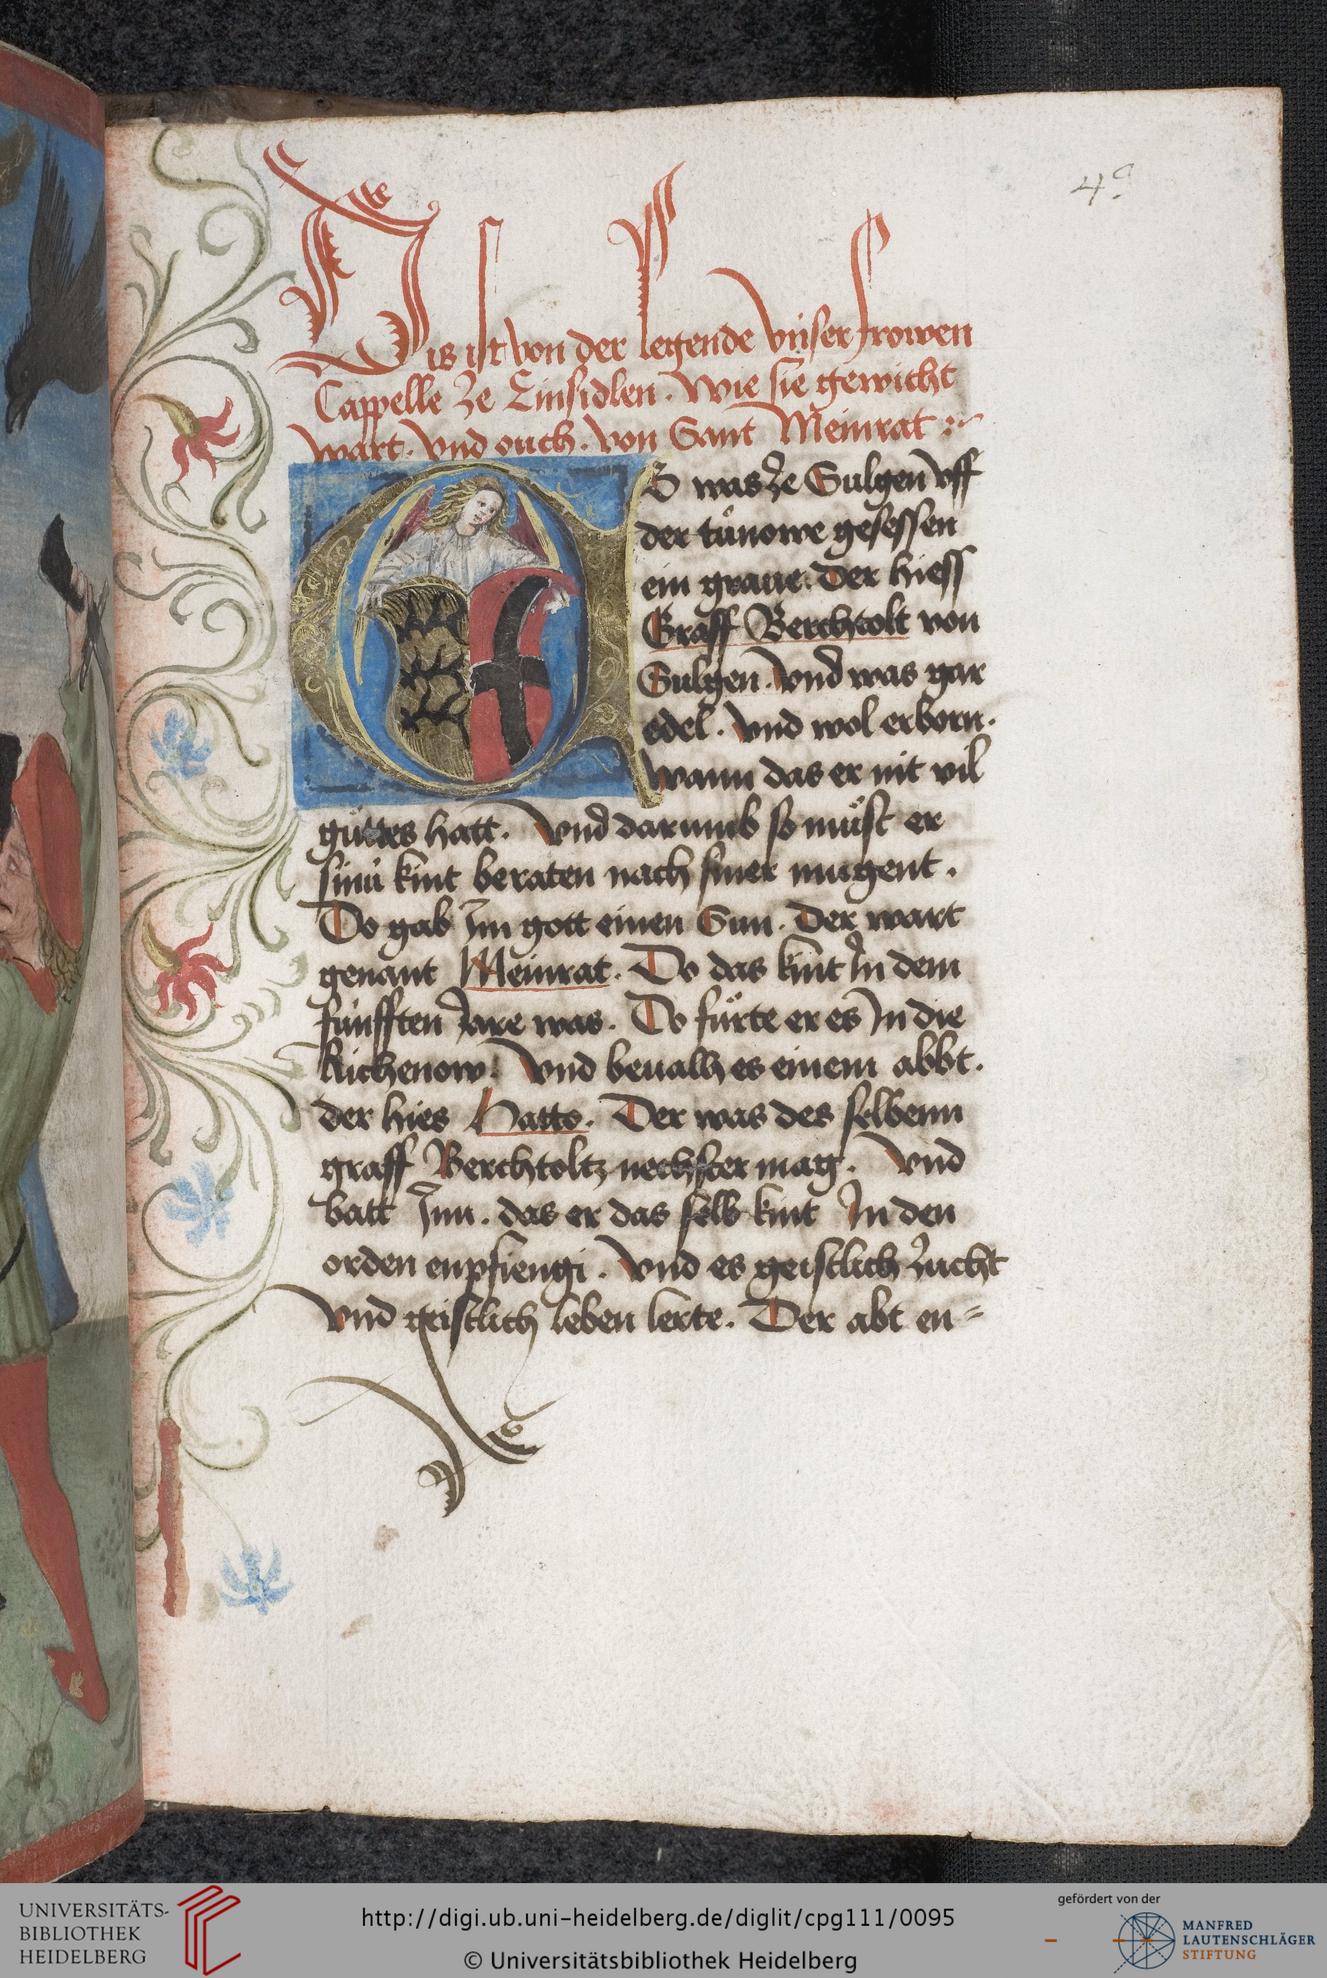 4c.
Dis ist von der legende vnser frowen
Cappelle ze Einsidlen. Wie sie gewicht
wart. vnd ouch. von Sant Meinrat
S was ze Sulgen vff
der tůnowe gesessen
ein graue. Der hiess
Graff Berchtolt von
Sulgen. vnd was gar
edel. vnd wol erborn.
wann das er nit vil
gůttes hatt. vnd darumb so můst er
sinú kint beraten nach siner mugent.
Do gab Im gott einen Sun. Der wart
genant Meinrat. Do das kint In dem
fúnfften Jare was. Do fůrte er es In die
Richenow. vnd beualh es einem abbt.
der hies Hatto. Der was des selbenn
graff Berchtoltz nechster mag. vnd
batt Inn. das er das selb kint In den
orden enpfiengi. vnd es geistlich zucht
vnd geistlich leben lerte. Der abt en=
UNIVERSITÄTS-
BIBLIOTHEK
HEIDELBERG
http://digi.ub.uni-heidelberg.de/diglit/cpg111/0095
© Universitätsbibliothek Heidelberg
gefördert von der
MANFRED
LAUTENSCHLÄGER
STIFTUNG